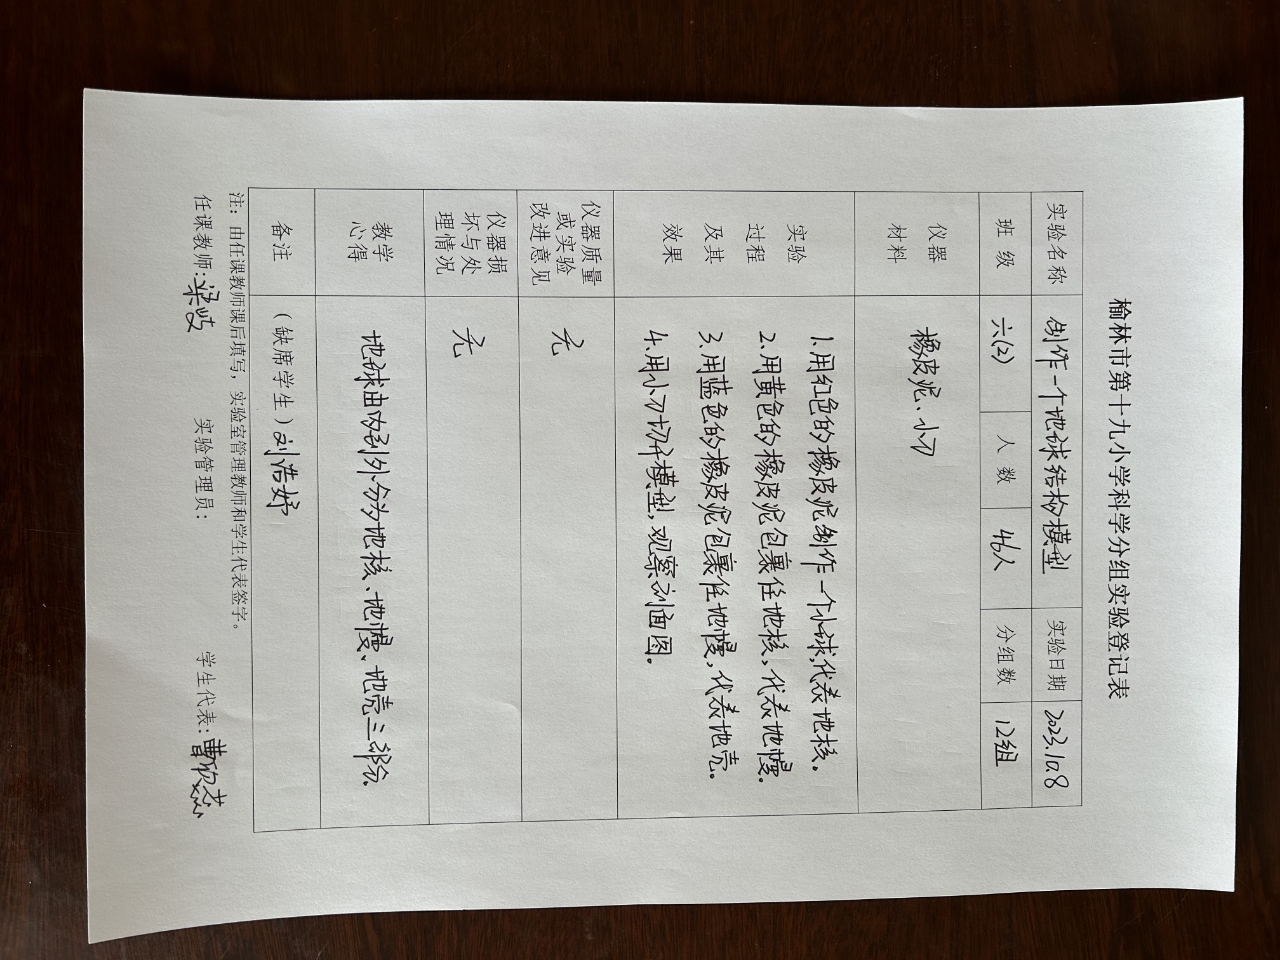 榆林市第十九小学科学分组实验登记表
实验名称 制作一个地球结构模型 实验日期 2023.10.8
班级 六(2) 人数 46人 分组数 12组
仪器
材料
橡皮泥、小刀
实验
过程
及其
效果
1.用红色的橡皮泥制作一个小球,代表地核。
2.用黄色的橡皮泥包裹住地核,代表地慢。
3.用蓝色的橡皮泥包裹住地慢,代表地壳。
4.用小刀切开模型,观察剖面图。
仪器质量
或实验
改进意见
无
仪器损
坏与处
理情况
无
教学
心得
地球由内到外分为地核、地慢、地壳三部分.
备注 (缺席学生)刘浩妤
注：由任课教师课后填写，实验室管理教师和学生代表签字。
任课教师:梁岐 实验管理员： 学生代表:曹